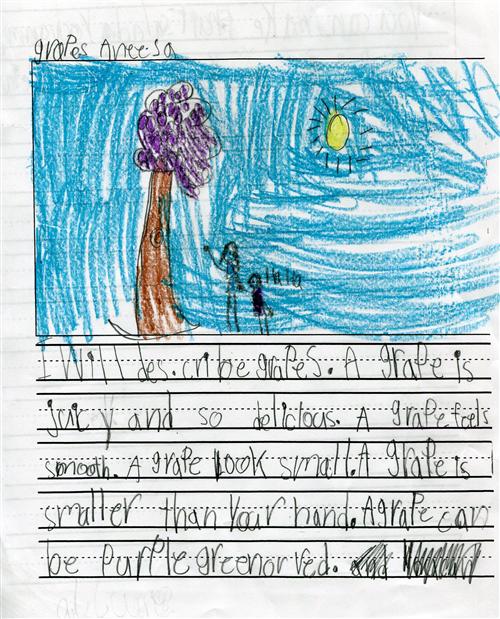 grapes Aneesa
lala
I Will des.cribe grapes. A grape is
juicy and so delicious. A grape feels
smooth. A grape look small. A grape is
smaller than your hand. A grape can
be Purple green or red.